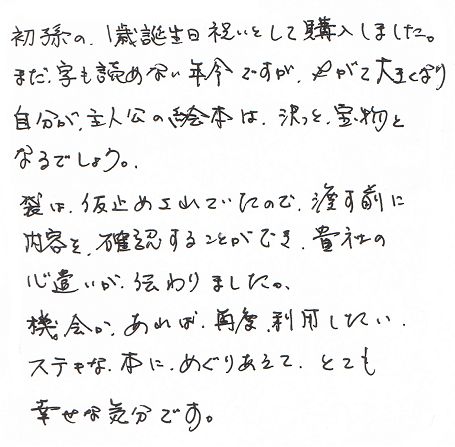 初孫の、1歳誕生日祝いとして購入しました。
まだ、字も読めない年令ですが、やがて大きくなり
自分が、主人公の絵本は、決っと、宝物と
なるでしょう。
袋は、仮止めされていたので、渡す前に
内容を、確認することができ、貴社の
心遣いが、伝わりました。
機会が、あれば、再度、利用したい、
ステキな、本に、めぐりあえて、とても
幸せな気分です。